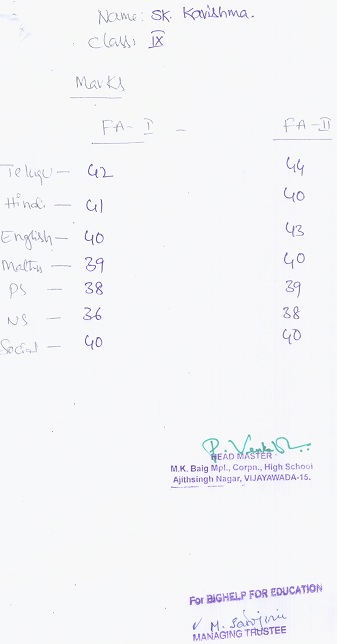 Name: SK. Karishma.
Class: IX
Marks
FA-I - FA-II
Telugu - 42 44
Hindi - 41 40
English - 40 43
Maths - 39 40
PS - 38 39
NS - 36 38
Social - 40 40
HEAD MASTER
M.K. Baig Mpl., Corpn., High School
Ajithsingh Nagar, VIJAYAWADA-15.
For BIGHELP FOR EDUCATION
M. Sarojini
MANAGING TRUSTEE